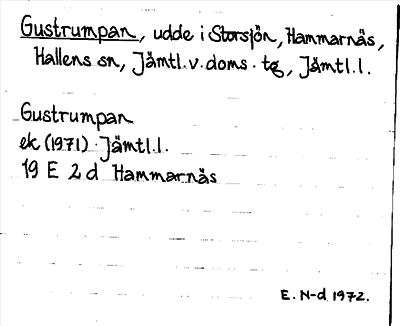 Gustrumpan, udde i Storsjön, Hammarnäs,
Hallens sn, Jämtl.v.doms.tg, Jämtl.l.
Gustrumpan
ek (1971) Jämtl.l.
19 E 2 d Hammarnäs
E. N-d 1972.